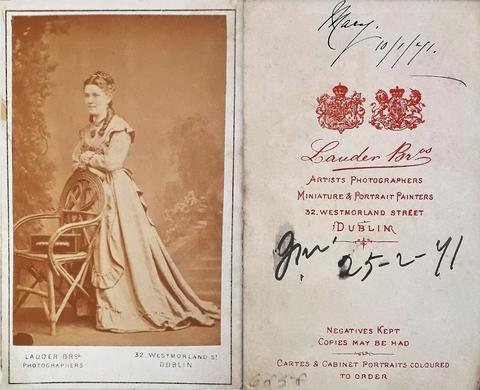 LAUDER BROS.
PHOTOGRAPHERS
32 WESTMORLAND ST.
DUBLIN
Mary.
10/1/41.
Lauder Bros
ARTISTS PHOTOGRAPHERS
MINIATURE & PORTRAIT PAINTERS
32. WESTMORLAND STREET
DUBLIN
25-2-41
NEGATIVES KEPT
COPIES MAY BE HAD
CARTES & CABINET PORTRAITS COLOURED
TO ORDER